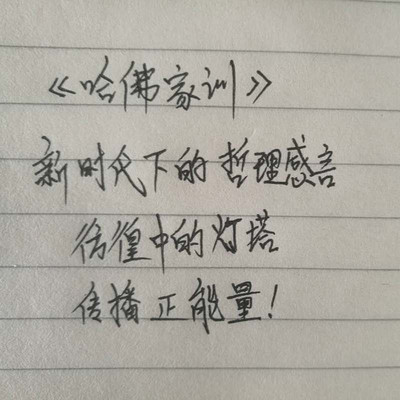 《哈佛家训》
新时代下的哲理感言
彷徨中的灯塔
传播正能量!